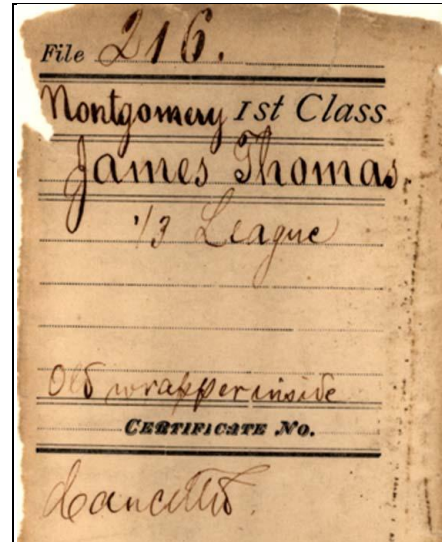 File 216.
Montgomery 1st Class
James Thomas,
1/3 League
Old wrapper inside
CERTIFICATE NO.
Cancelled.